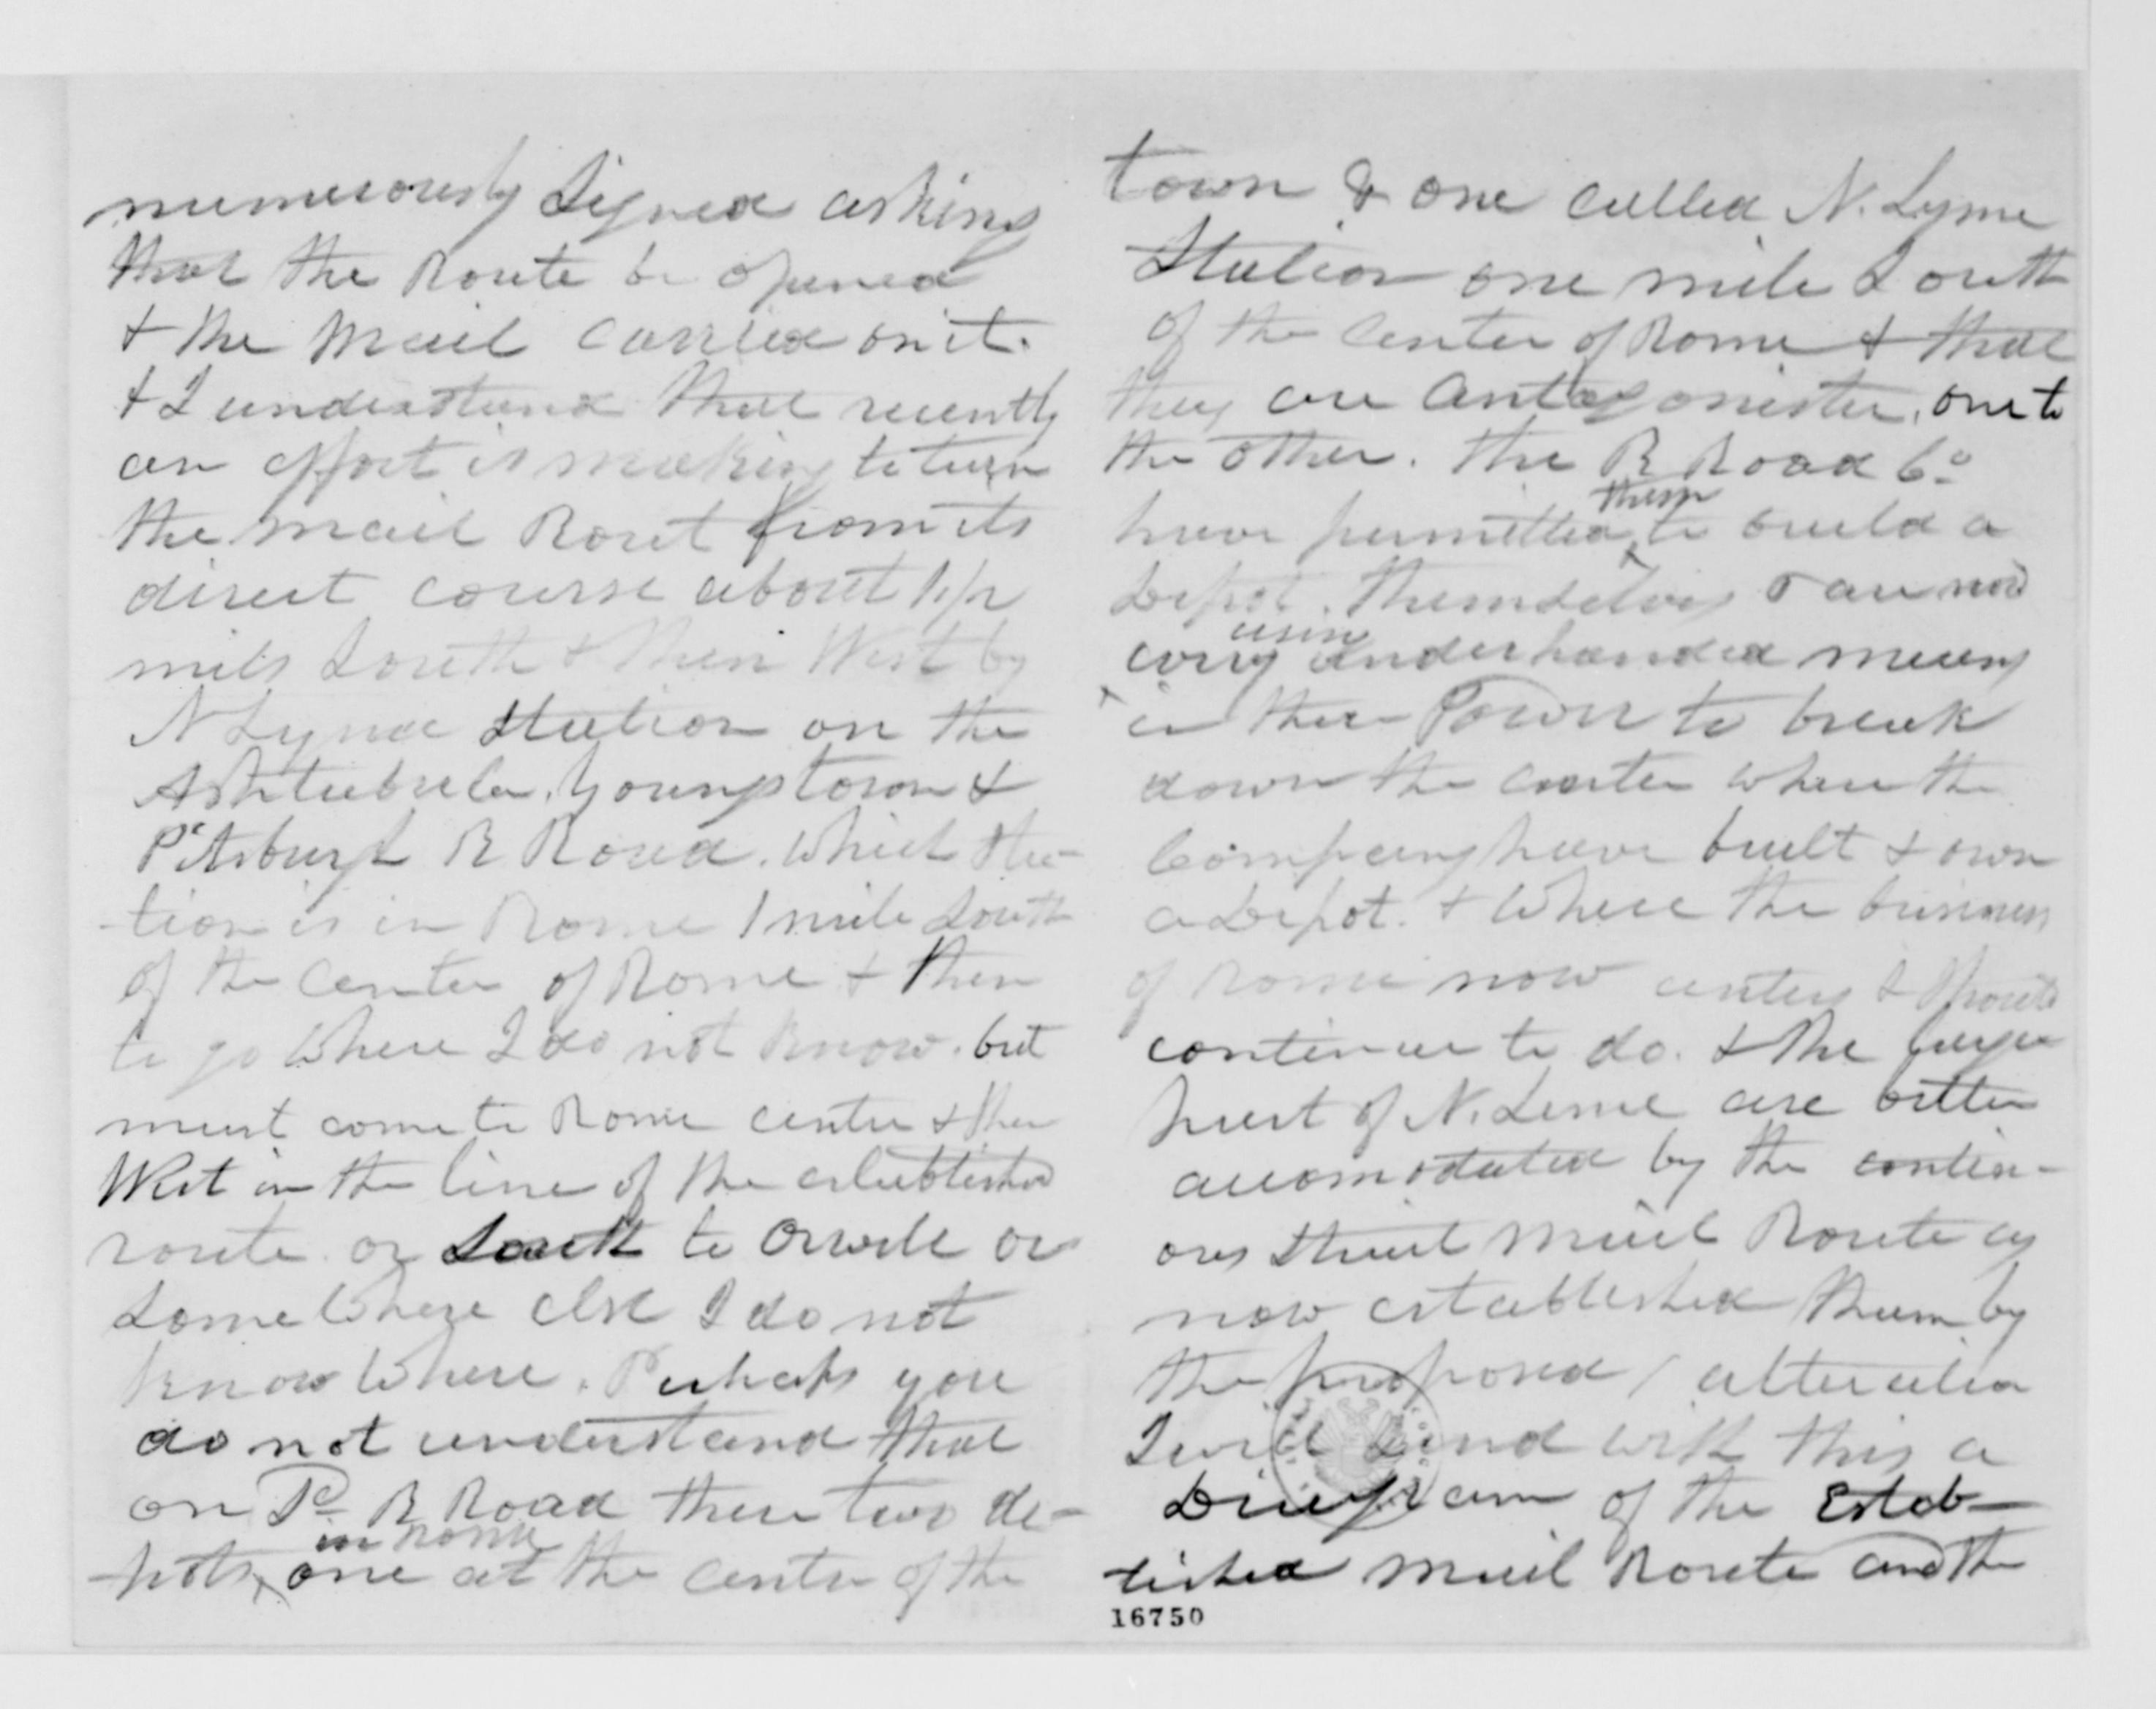 numerously Signed asking
that the Route be opened
& the Mail carried on it.
& I understand that recently
an effort is making to turn
the mail Rout from its
direct course about 1 1/2
mils South & then West by
N Lyme Station on the
Ashtabula, Youngstown &
Pittsburgh R Road. Which Sta-
tion is in Rome 1 mile South
of the Center of Rome & then
to go Where I do not Know. but
must come to Rome center & then
West in the line of the established
route or South to Orwell or
Some Where else I do not
Know Where. Perhaps you
do not understand that
on Sd R Road there two de-
in Rome
pots, one at the center of the
town & one called N. Lyme
Station one mile South
of the Center of Rome & that
they are Antagonistic, one to
the other. The R Road Co
them
have permitted to build a
Depot. Themselves & are now
using
every underhanded means
in their Power to break
down the center where the
Company have built & own
a Depot. & Where the business
of Rome now centers & Should
continue to do. & the larger
part of N. Lime are better
accomodated by the contin-
ous Strait Mail Route as
now established than by
the proposed alteration
I will Send with this a
Diagram of the Estab-
lished Mail Route and the
16750